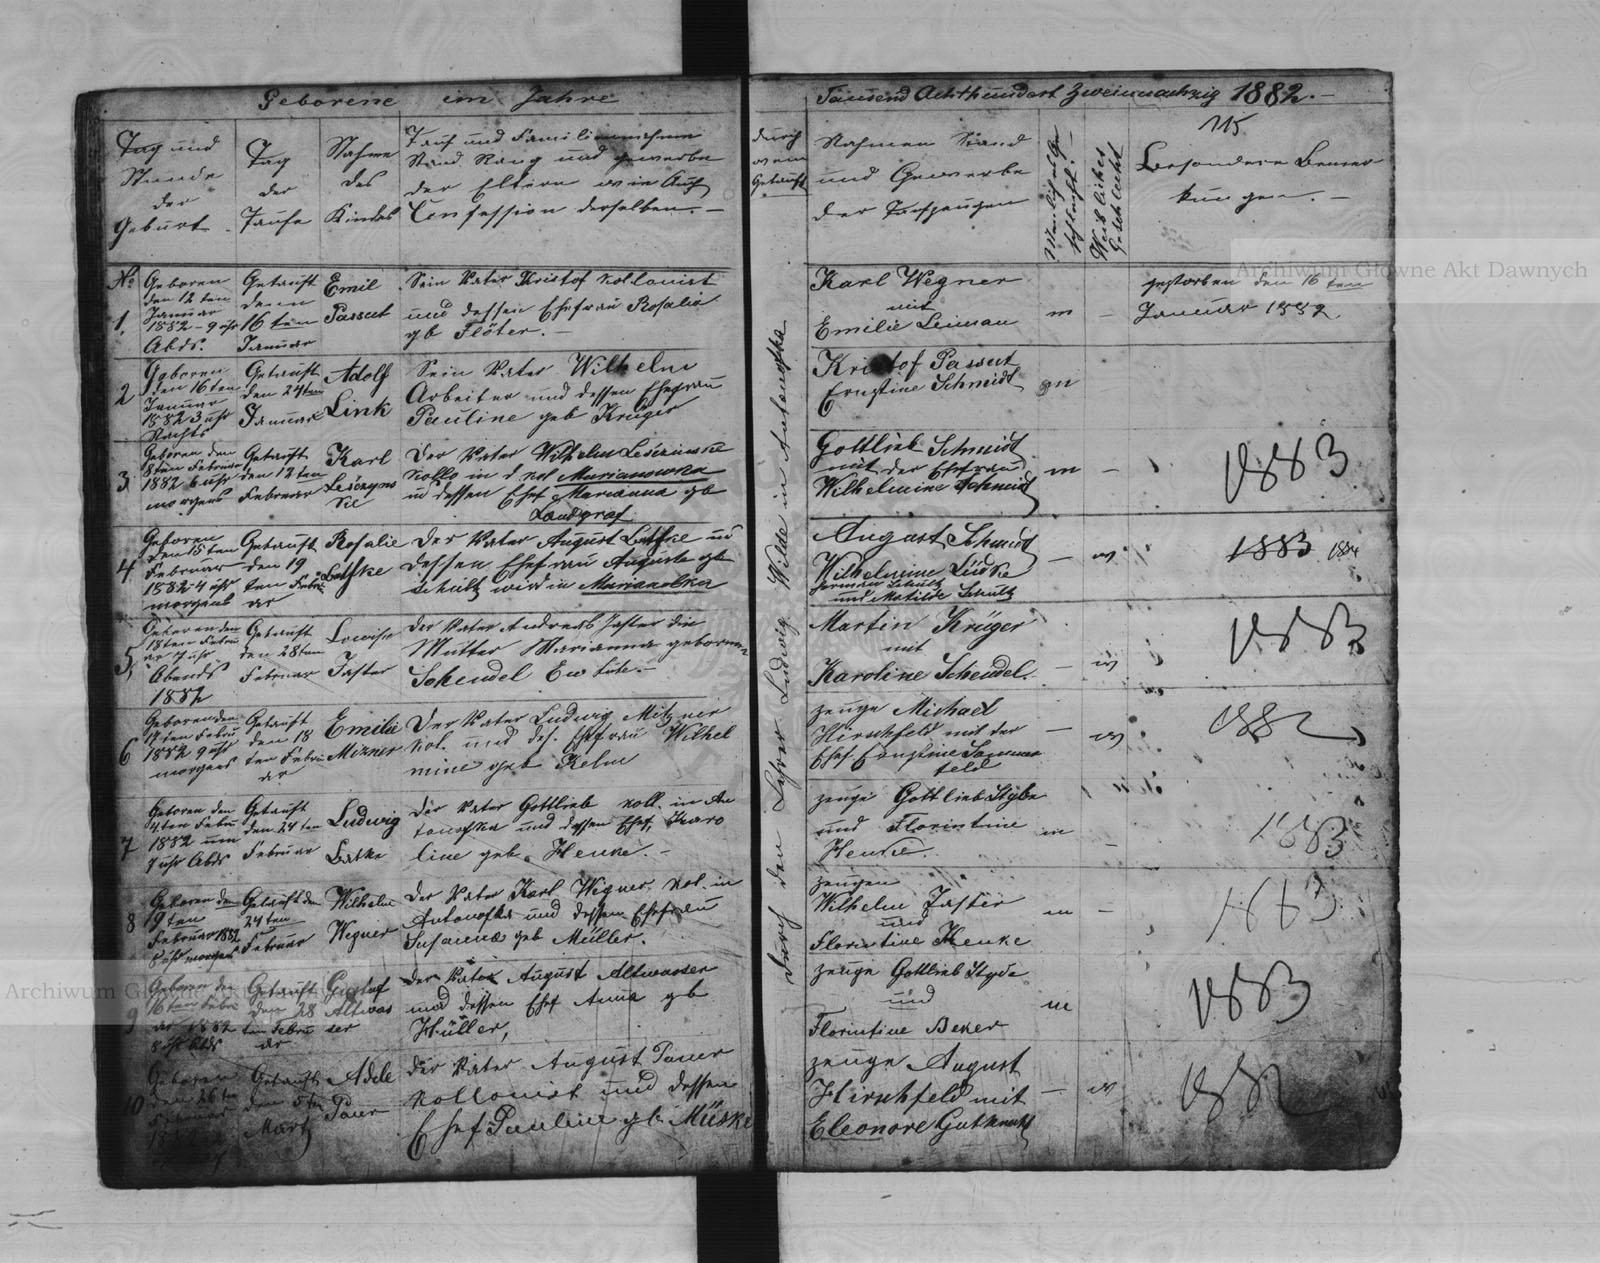 Geborene im Jahre
Tag und
Stunde
der
Geburt
Tag
der
Taufe
Nahme
des
Kindes
Tauf und Familiennahme
Stand Rang und gewerbe
der Eltern wie Auch
Confession derselben. —
No
1.
Geboren
den 12 ten
Januar
1882 - 9 uhr
Abds.
Getauft
denn
16 ten
Januar
Emil
Passut
Sein Vater Kristof Kollonist
und dessen Ehefrau Rosalie
gb Flöter. —
2
Geboren
den 16 ten
Januar
1882 3 uhr
Nachts
Getauft
den 24 ten
Januar
Adolf
Link
Sein Vater Wilhelm
Arbeiter und dessen Ehefrau
Pauline geb Krüger
3
Geboren den
8ten Februar
1882 6 uhr
morgens
Getauft
den 12 ten
Februar
Karl
Leśczyns
kie
Der Vater Wilhelm
in d Kol Marianowka
u dessen Ehef Marianna gb
Landgraf
4
Geboren
den 15 ten
Februar
1882 4 uhr
morgens
Getauft
den 19
ten Febru
ar
Rosalie
Der Vater August
dessen Ehefrau Auguste gb
Schultz
5,
Geboren den
18ten Febru
ar 7 uhr
Abends
1882
Getauft
den 28ten
Februar
Lowise
Jaster
der Vater Andreas Jaster die
Mutter Marianna geboren
Schendel
6
Geboren den
17 ten Febru
1882 9 uhr
morgens
Getauft
den 18
ten Febru
ar
Emilie
Mizner
Der Vater Ludwig Mitzner
Kol. und des. Ehefrau Wilhel
mine geb Kelm
7
Geboren den
4ten Febru
1882 um
7 uhr Abds
Getauft
den 24 ten
Februar
Ludwig
Latke
der Vater Gottlieb Koll. in An
tonofka und dessen Ehef, Karo
line geb. Henke. —
8
Geboren den
19 ten
Februar 1882
8 uhr morgens
Getauft den
24 ten
Februar
Wilhelm
Wegner
Der Vater Karl Wegner. Kol. in
Antonofka und dessen Ehefrau
Susanna geb Müller.
9
Geboren den
16 ten Febru
ar 1882
8 uhr Abds
Getauft
den 28
ten Febru
ar
Gustaf
Altwas
ser
der Vater August Altwasser
und dessen Ehef Anna gb
Hüller,
10
Geboren
den 26 ten
Februar
Getauft
den 5 ten
Martz
Adele
Paur
der Vater August Paur
Kollonist und dessen
Ehef Pauline gb Müske
Tausend Achthundert Zweiundachzig 1882. —
115
durch
wem
Getauft
Nahmen Stand
und Gewerbe
der Taufzeugen
Weibliches
Geschlecht
Besondere Bemer
kungen. —
durch den Lehrer Ludwig Wilde in Antonofka
Karl Wegner
mit
Emilie Leiman
m —
gestorben den 16 ten
Januar 1882
Kristof Passut
Ernstine Schmidt
m
Gottlieb Schmidt
mit der Ehefrau
Wilhelmine Schmidt
m —
1883
August Schmidt
Wilhelmine Lüdke
herman Schultz
und Matilde Schultz
— w
1883 1884
Martin Krüger
mit
Karoline Schendel.
— w
1883
zeuge Michael
Hirschfeld mit der
Ehef Ernstine
feld
— w
1882
zeuge Gottlieb
und Florintine
Henke.
m —
1883
zeugen
Wilhelm Jaster
und
Florintine Henke
m —
1883
zeuge Gottlieb
und
Florintine Beker
m
1883
zeuge August
Hirschfeld mit
Eleonore Gutknecht
— w
1882
Archiwum Główne Akt Dawnych
Archiwum Główne Akt Dawnych